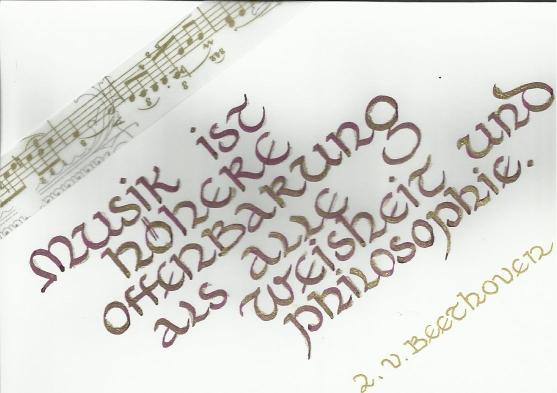 Musik ist
höhere
Offenbarung
als alle
Weisheit und
Philosophie.
L. v. Beethoven